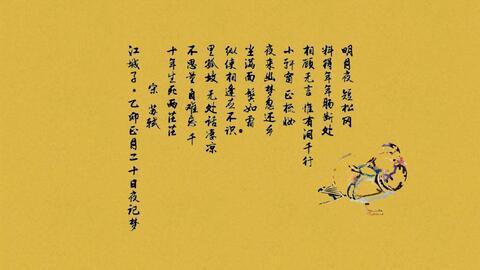 江城子·乙卯正月二十日夜记梦
宋 苏轼
十年生死两茫茫
不思量 自难忘 千
里孤坟 无处话凄凉
纵使相逢应不识。
尘满面 鬓如霜
夜来幽梦忽还乡
小轩窗 正梳妆
相顾无言 惟有泪千行
料得年年肠断处
明月夜 短松冈